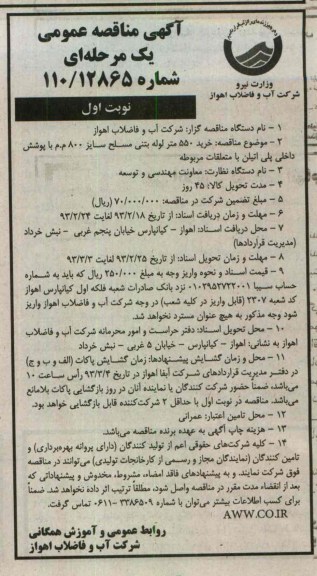 آگهی مناقصه عمومی
یک مرحله‌ای
شماره ۱۱۰/۱۲۸۶۵
وزارت نیرو
شرکت آب و فاضلاب اهواز
نوبت اول
۱ – نام دستگاه مناقصه گزار: شرکت آب و فاضلاب اهواز
۲ – موضوع مناقصه: خرید ۵۵۰ متر لوله بتنی مسلح سایز ۸۰۰ م.م با پوشش
داخلی پلی اتیلن با متعلقات مربوطه
۳ – نام دستگاه نظارت: معاونت مهندسی و توسعه
۴ – مدت تحویل کالا: ۴۵ روز
۵ – مبلغ تضمین شرکت در مناقصه: ۷۰/۰۰۰/۰۰۰ (ریال)
۶ – مهلت و زمان دریافت اسناد: از تاریخ ۹۳/۲/۱۸ لغایت ۹۳/۲/۲۴
۷ – محل دریافت اسناد: اهواز – کیانپارس خیابان پنجم غربی – نبش خرداد
(مدیریت قراردادها)
۸ – مهلت و زمان تحویل اسناد: از تاریخ ۹۳/۲/۲۵ لغایت ۹۳/۳/۳
۹ – قیمت اسناد و نحوه واریز وجه به مبلغ ۲۵۰/۰۰۰ ریال که باید به شماره
حساب سیبا ۰۱۰۲۹۵۲۷۲۲۰۰۱ نزد بانک صادرات شعبه فلکه اول کیانپارس اهواز
کد شعبه ۲۳۰۷ (قابل واریز در کلیه شعب) در وجه شرکت آب و فاضلاب اهواز واریز
شود وجه مذکور به هیچ عنوان مسترد نخواهد شد.
۱۰ – محل تحویل اسناد: دفتر حراست و امور محرمانه شرکت آب و فاضلاب
اهواز به نشانی: اهواز – کیانپارس – خیابان ۵ غربی – نبش خرداد
۱۱ – محل و زمان گشایش پیشنهادها: زمان گشایش پاکات (الف و ب و ج)
در دفتر مدیریت قراردادهای شرکت آبفا اهواز در تاریخ ۹۳/۳/۴ رأس ساعت ۱۰
می‌باشد، ضمناً حضور شرکت کنندگان یا نماینده آنان در روز بازگشایی پاکات بلامانع
می‌باشد. مناقصه در نوبت اول با حداقل ۲ شرکت‌کننده قابل بازگشایی خواهد بود.
۱۲ – محل تامین اعتبار: عمرانی
۱۳ – هزینه چاپ آگهی به عهده برنده مناقصه می‌باشد.
۱۴ – کلیه شرکت‌های حقوقی اعم از تولید کنندگان (دارای پروانه بهره‌برداری) و
تامین کنندگان (نمایندگان مجاز و رسمی از کارخانجات تولیدی) می‌توانند در مناقصه
فوق شرکت نمایند. و به پیشنهادهای فاقد امضاء، مشروط، مخدوش و پیشنهاداتی که
بعد از انقضاء مدت مقرر در مناقصه واصل شود، مطلقاً ترتیب اثر داده نخواهد شد. ضمناً
برای کسب اطلاعات بیشتر می‌توان با شماره ۳۳۸۶۵۰۹–۰۶۱۱ تماس گرفت.
AWW.CO.IR
روابط عمومی و آموزش همگانی
شرکت آب و فاضلاب اهواز